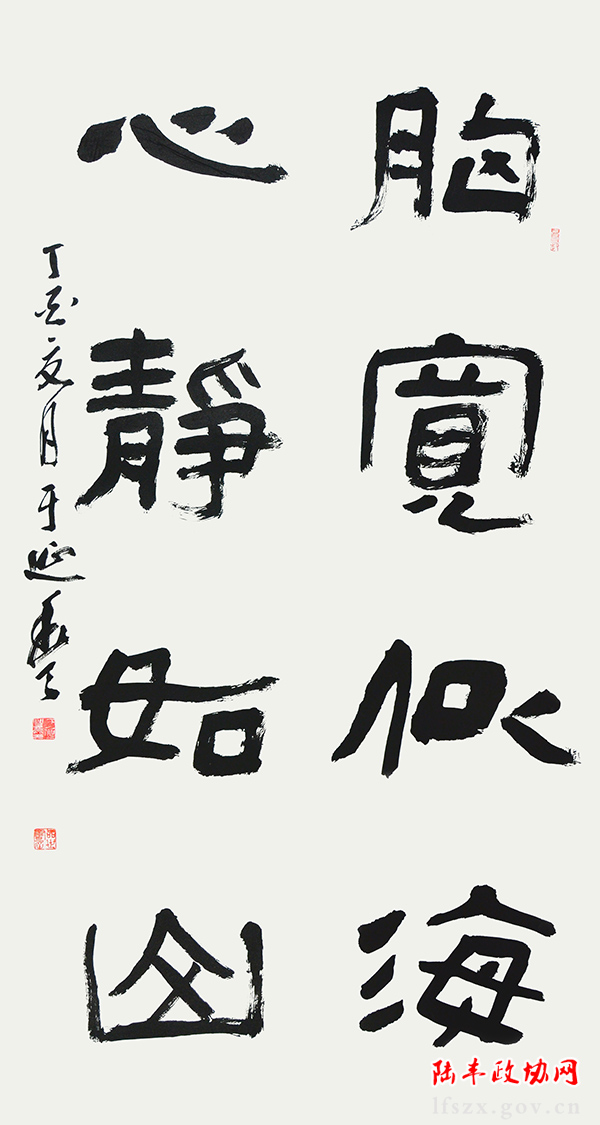 胸寬似海
心靜如山
丁酉夏月于延
陆丰政协网
lfszx.gov.cn